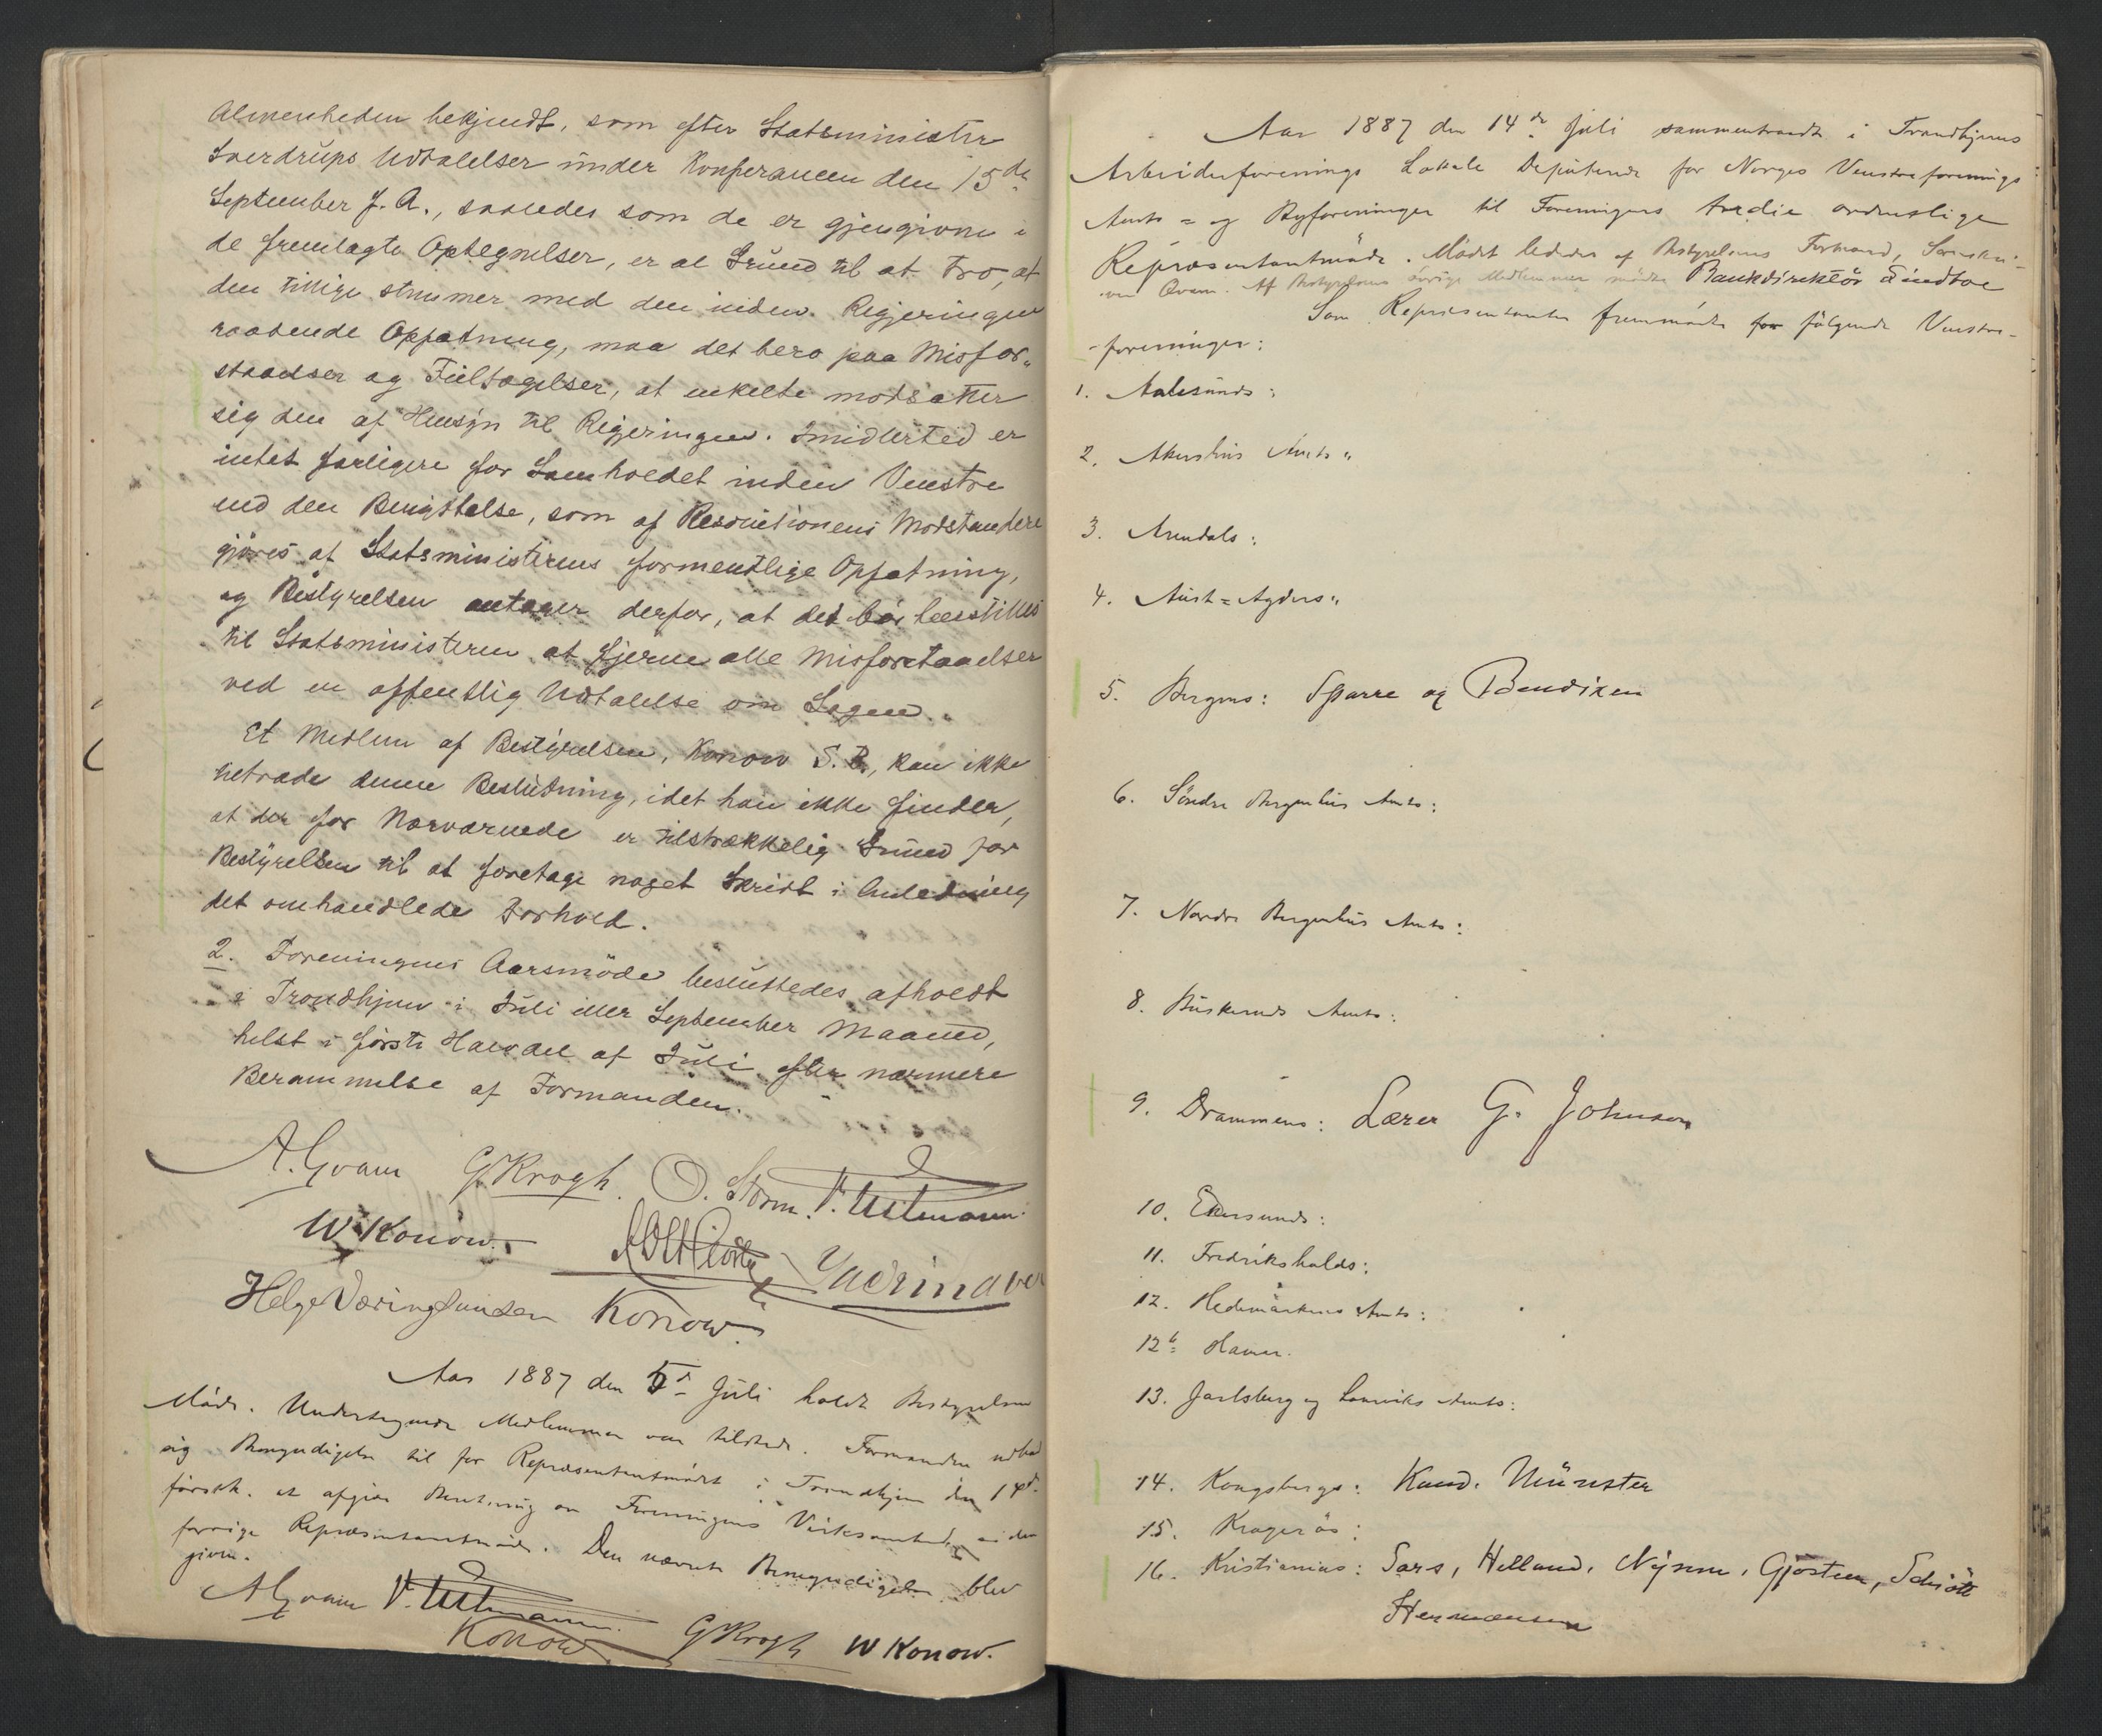 Almenheden bekjendt, som efter Statsminister
Sverdrups Udtalelser under Konferancen den 15de
September f. A., saaledes som de er gjengivne i
de fremlagte Optegnelser, er al Grund til at tro, at
den tillige stemmer med den inden Regjeringen
raadende Opfatning, maa det bero paa Misfor„
staaelser og Feiltagelser, at enkelte modsætter
sig den af Hensyn til Regjeringen. Imidlertid er
intet farligere for Samholdet inden Venstre
end den Benyttelse, som af Resolutionens Modstandere
gjøres af Statsministerens formentlige Opfatning,
og Bestyrelsen antager derfor, at det bør henstilles
til Statsministeren at fjerne alle Misforstaaelser
ved en offentlig Udtalelse om Sagen.„
Et Medlem af Bestyrelsen, Konow S. B., kan ikke
tiltræde denne Beslutning, idet han ikke finder,
at der for Nærværende er tilstrækkelig Grund for
Bestyrelsen til at foretage noget Skridt i Anledning
det omhandlede Forhold.
2. Foreningens Aarsmøde besluttedes afholdt
i Trondhjem i Juli eller September Maaned,
helst i første Halvdel af Juli efter nærmere
Berammelse af Formanden.
A. Qvam G Krogh. O. Storm. V. Ullmann.
W Konow.
Helge Væringsaasen Konow.
Aar 1887 den 5te Juli holdt Bestyrelsen
Møde. Undertegnede Medlemmer var tilstede. Formanden udbad
sig Bemyndigelse til for Repræsentantmødet i Trondhjem den 14de
førstk. at afgive Beretning om Foreningens Virksomhed siden
forrige Repræsentantmøde. Den nævnte Bemyndigelse blev
given.
A Qvam V. Ullmann.
Konow G Krogh W Konow.
Aar 1887 den 14de Juli sammentraadte i Trondhjems
Arbeiderforenings Lokale Deputerede for Norges Venstreforenings
Amts= og Byforeninger til Foreningens tredie ordentlige
Repræsentantmøde. Mødet lededes af Bestyrelsens Formand, Sorenskri-
ver Qvam. Af Bestyrelsens øvrige Medlemmer mødte Bankdirektør Lindboe
Som Repræsentanter fremmødte for følgende Venstre-
foreninger:
1. Aalesunds:
2. Akershus Amts„
3. Arendals:
4. Aust=Agders„
5. Bergens: Sparre og Bendixen
6. Søndre Bergenhus Amts:
7. Nordre Bergenhus Amts:
8. Buskeruds Amts:
9. Drammens: Lærer G. Johnson
10. Ekersunds:
11. Fredrikshalds:
12. Hedemarkens Amts:
12b Hamar.
13. Jarlsberg og Laurviks Amts:
14. Kongsbergs: Kand. Münster
15. Kragerøs:
16. Kristianias: Sars, Helland, Nysom, Gjøsteen, Schiøtt
Hermansen